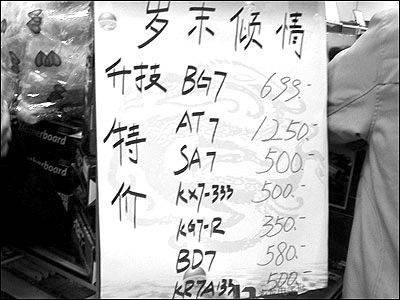 岁末倾情
升技特价
BG7 699.-
AT7 1250.-
SA7 500.-
KX7-333 500.-
KG7-R 350.-
BD7 580.-
KR7A133 500.-
erboard